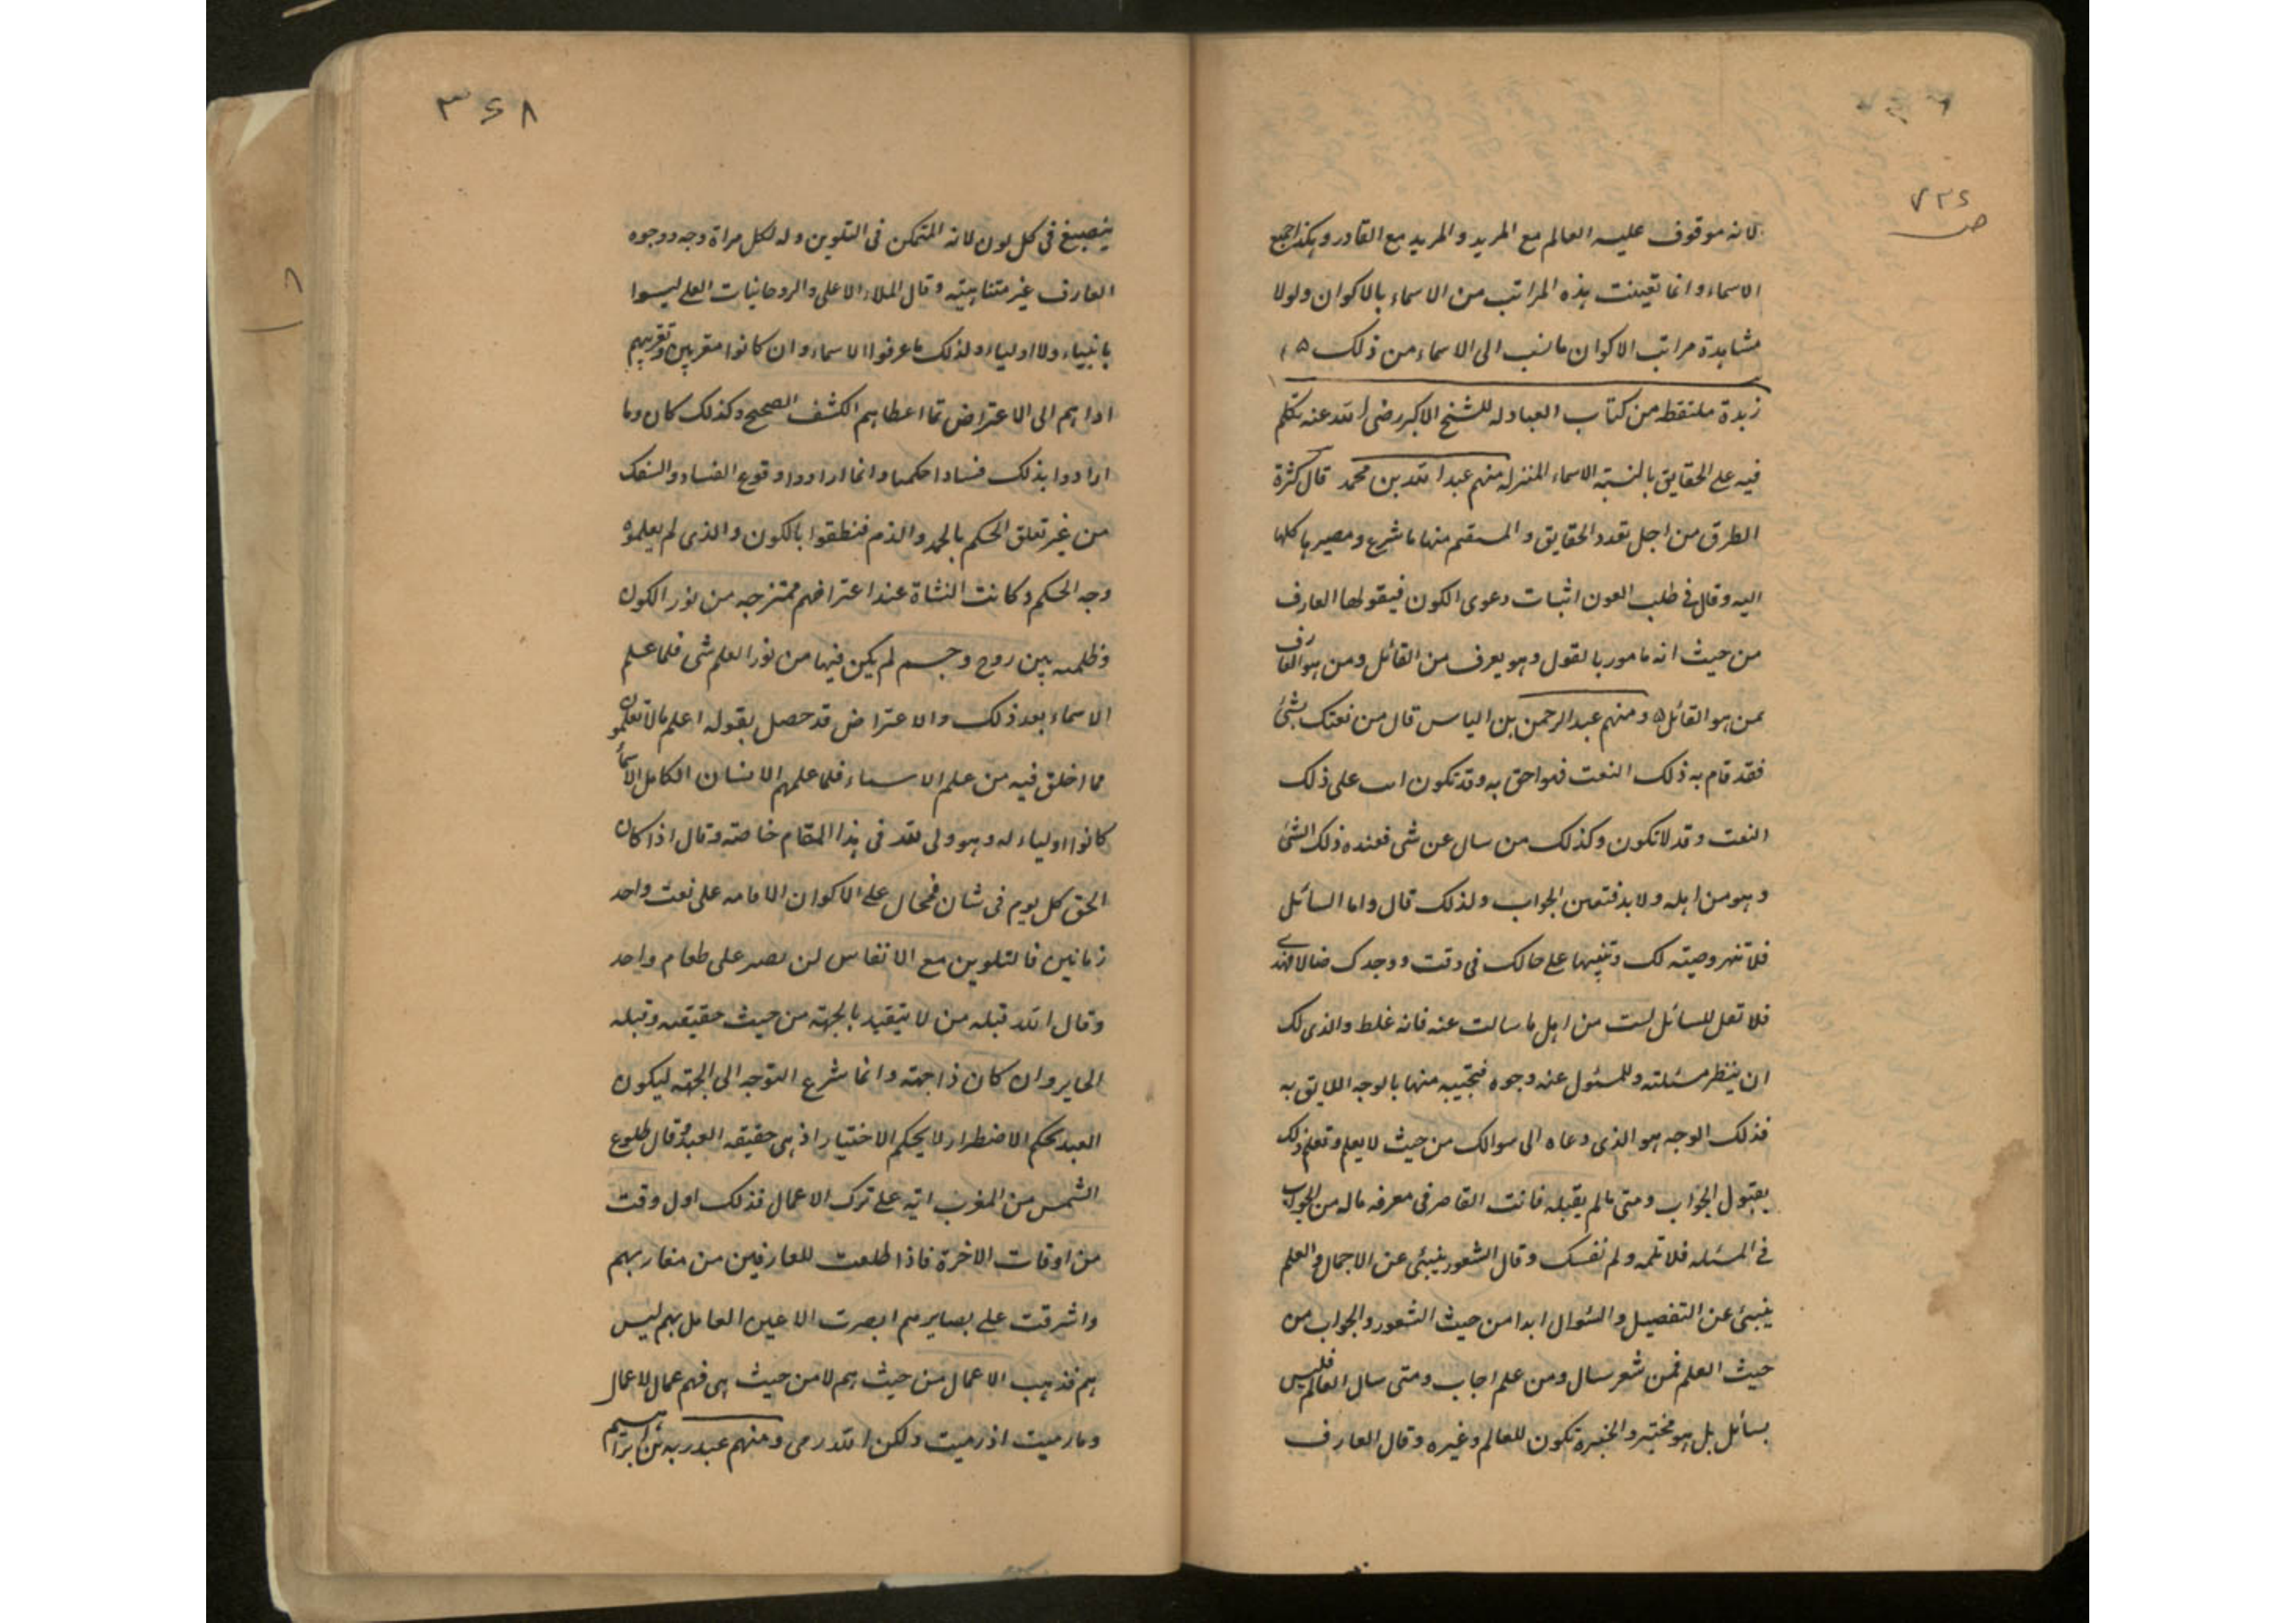 ٧٣٤
ص
لانه موقوف عليه العالم مع المريد والمريد مع القادر وهكذا جميع
الاسماء وانما تعينت هذه المراتب من الاسماء بالاكوان ولولا
مشاهدة مراتب الاكوان ما نسب الى الاسماء من ذلك ۵
زبدة ملتقطه من كتاب العبادله للشيخ الاكبر رضى الله عنه تكلم
فيه على الحقايق بالنسبة الاسماء المنزله منهم عبد الله بن محمد قال كثرة
الطرق من اجل تعدد الحقايق والمستقيم منها ما شرع ومصيرها كلها
اليه وقال فى طلب العون اثبات دعوى الكون فيقولها العارف
من حيث انه مامور بالقول وهو يعرف من القائل ومن هو العارف
بمن هو القائل ۵ ومنهم عبد الرحمن بن الياس قال من نعتك بشئ
فقد قام به ذلك النعت فهو احق به وقد تكون انت على ذلك
النعت وقد لا تكون وكذلك من سال عن شى فعنده ذلك الشئ
وهو من اهله ولا بد فتعين الجواب ولذلك قال واما السائل
فلا تنهر وصيته لك وتنبيها على حالك فى وقت ووجدك ضالا فهدى
فلا تقل للسائل لست من اهل ما سالت عنه فانه غلط والذى لك
ان ينظر مسئلته وللمسئول عنه وجوه فتجيبه منها بالوجه اللايق به
فذلك الوجه هو الذى دعاه الى سوالك من حيث لا يعلم وتعلم ذلك
بقبول الجواب ومتى ما لم يقبله فانت القاصر فى معرفه ماله من الجواب
فى المسئله فلا تلمه ولم نفسك وقال الشعور ينبئ عن الاجمال والعلم
ينبئ عن التفصيل والسئوال ابدا من حيث الشعور والجواب من
حيث العلم فمن شعر سال ومن علم اجاب ومتى سال العالم فليس
بسائل بل هو مختبر والخبرة تكون للعالم وغيره وقال العارف
٣٤٨
ينصبغ فى كل لون لانه المتمكن فى التلوين وله لكل مراة وجه ووجوه
العارف غير متناهيته وقال الملاء الاعلى والروحانيات العلى ليسوا
بانبياء ولا اولياء ولذلك ما عرفوا الاسماء وان كانوا مقربين وتقريبهم
اداهم الى الاعتراض مما اعطاهم الكشف الصحيح وكذلك كان وما
ارادوا بذلك فسادا حكميا وانما ارادوا وقوع الفساد والسفك
من غير تعلق الحكم بالحمد والذم فنطقوا بالكون والذى لم يعلموه
وجه الحكم وكانت النشاة عند اعتراضهم ممتزجه من نور الكون
وظلمته بين روح وجسم لم يكين فيها من نور العلم شى فلما علم
الاسماء بعد ذلك والاعتراض قد حصل بقوله اعلم ما لا تعلمون
مما اخلق فيه من علم الاسماء فلما علمهم الانسان الكامل الاسماء
كانوا اولياء له وهو ولى لله فى هذا المقام خاصته وقال اذا كان
الحق كل يوم فى شان فمحال على الاكوان الاقامه على نعت واحد
زمانين فالتلوين مع الانفاس لن نصبر على طعام واحد
وقال الله قبله من لا يتقيد بالجهته من حيث حقيقته وقبله
الحاير وان كان ذا جهته وانما شرع التوجه الى الجهته ليكون
العبد بحكم الاضطرار لا بحكم الاختيار اذ هى حقيقه العبد وقال طلوع
الشمس من المغرب اتيه على ترك الاعمال فذلك اول وقت
من اوقات الاخرة فاذا طلعت للعارفين من مغاربهم
واشرقت على بصايرهم ابصرت الاعين العامل بهم ليس
هم فذهب الاعمال من حيث هم لا من حيث هى فهم عمال لا عمال
وما رميت اذ رميت ولكن الله رمى ومنهم عبد ربه بن ابراهيم